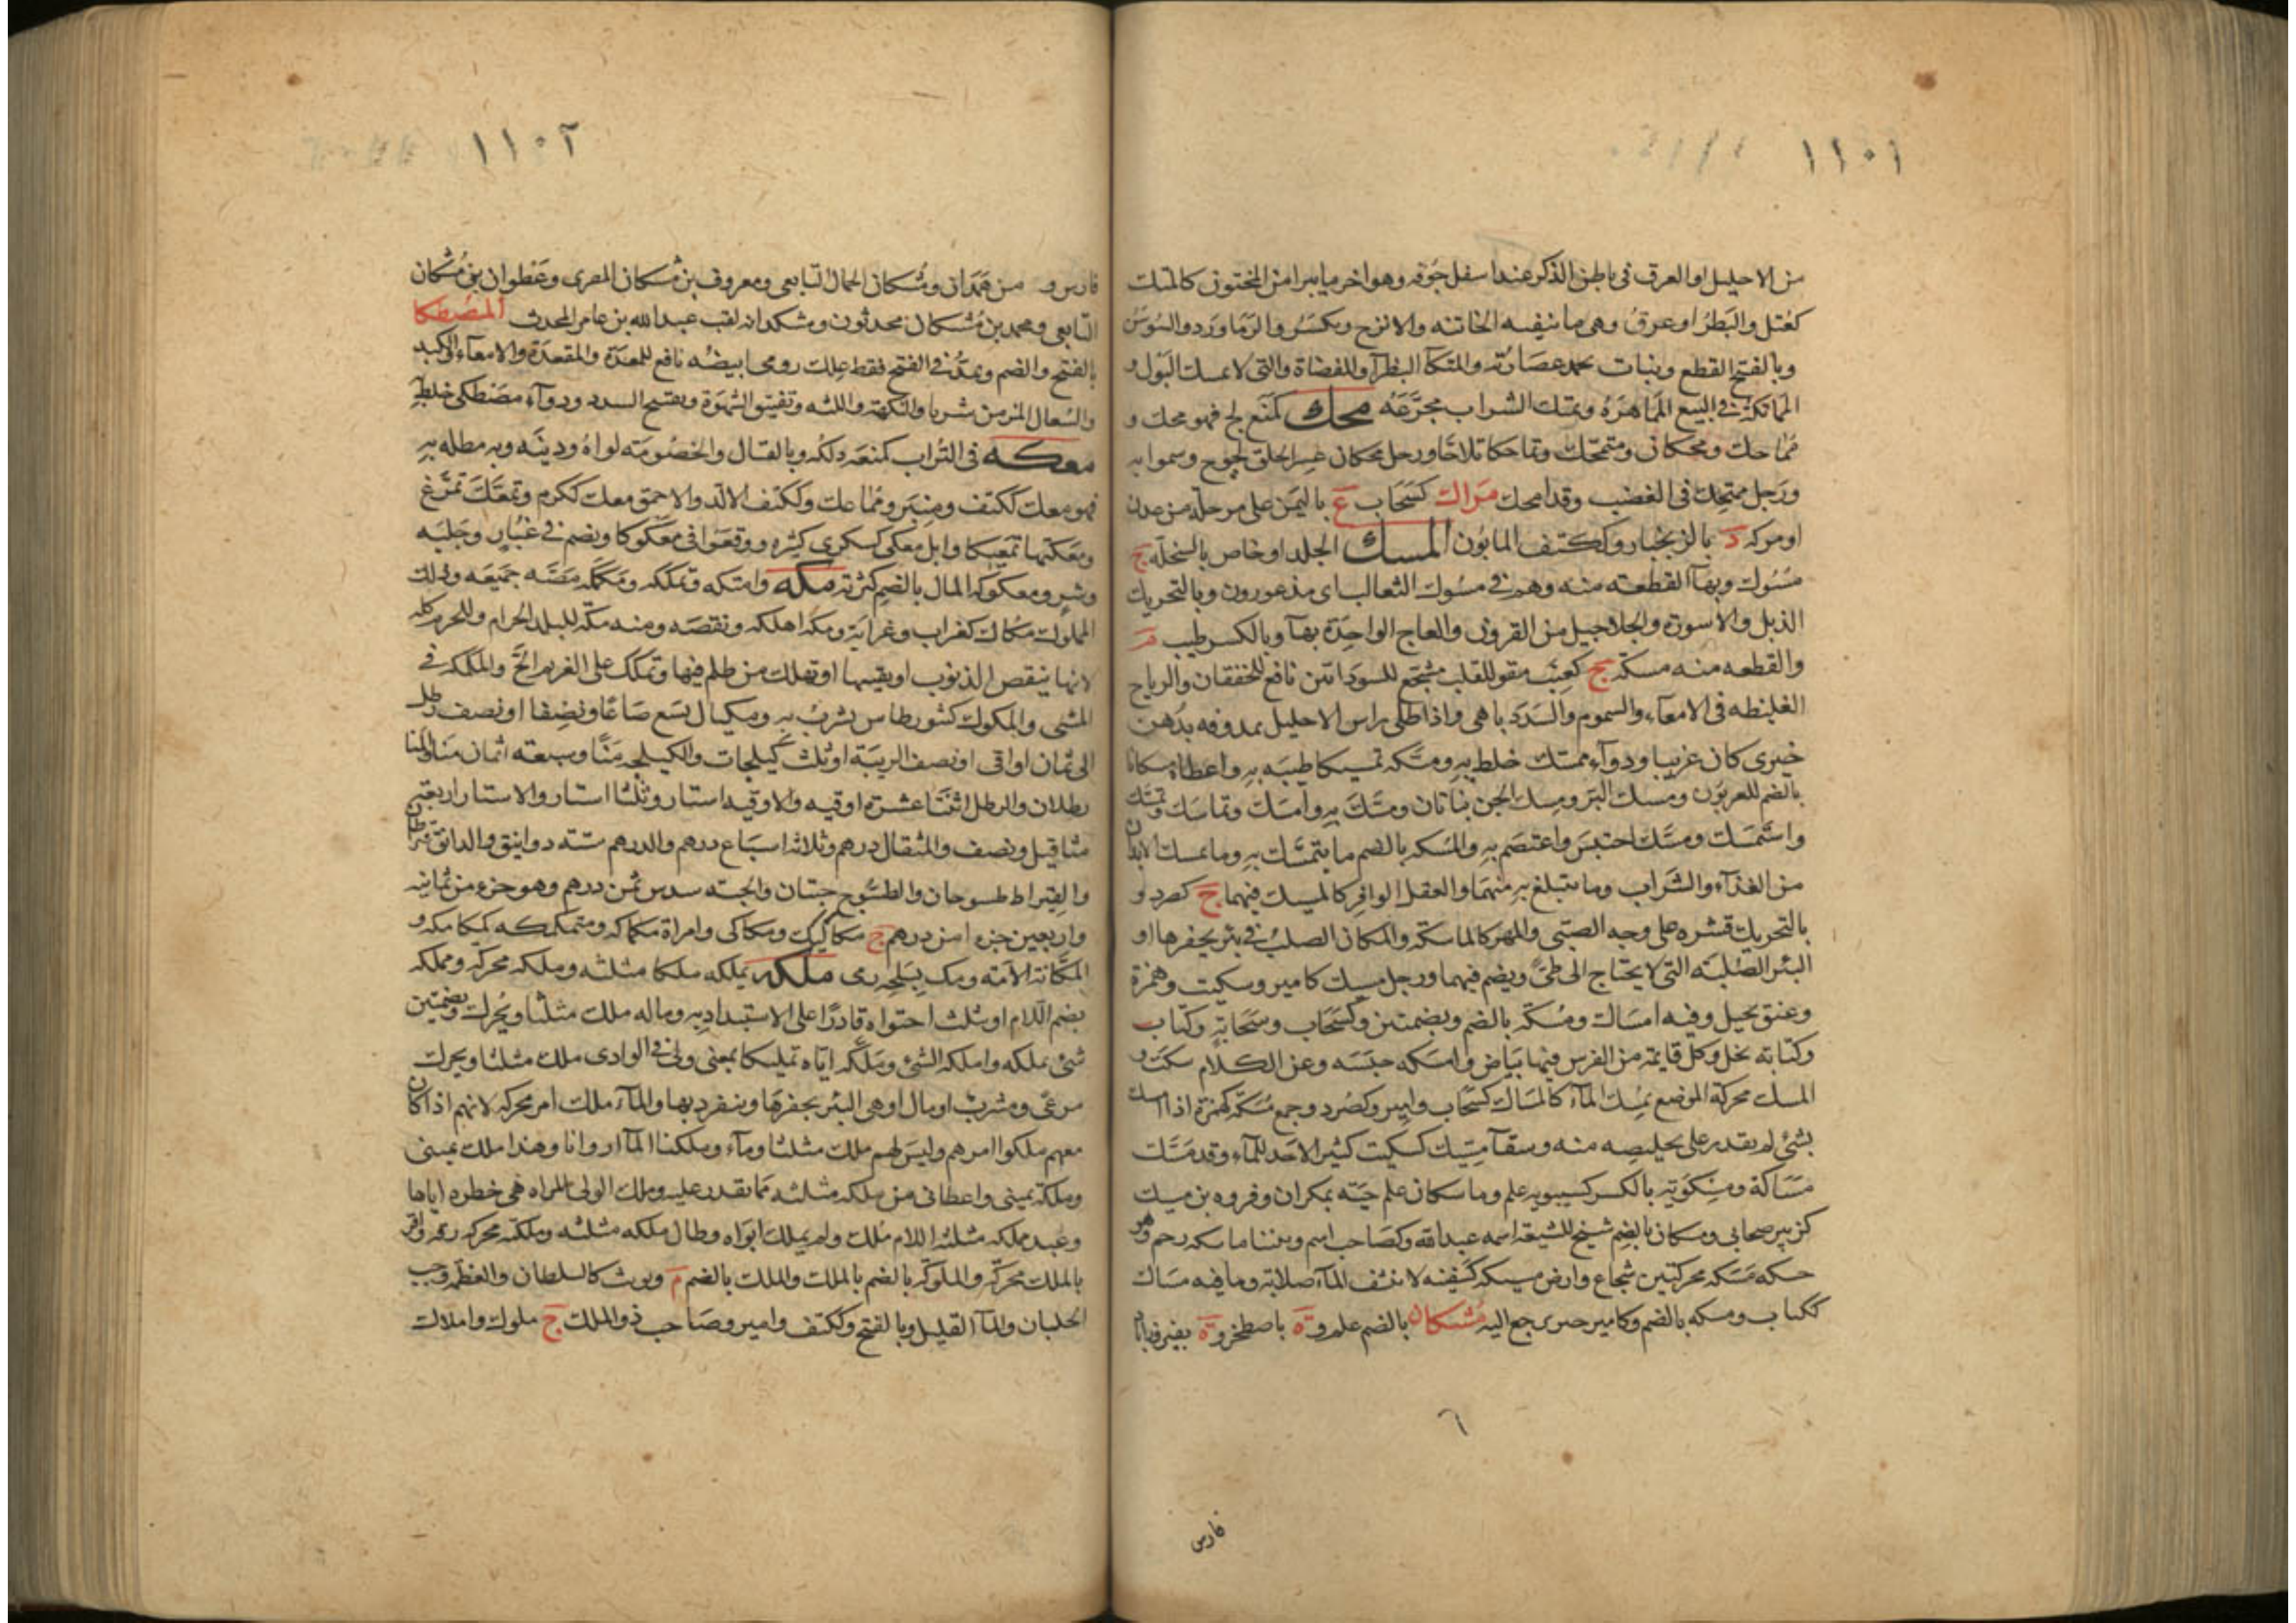 ١١٠١
من الاحليل او العرق فى باطن الذكر عند اسفل حوقه وهو اخر ما يبرا من المختون كالمتك
كعُتل والبظر او عرق وهى ما تبقيه الخاتنه والاترج ويكسر والزماورد والسوسن
وبالفتح القطع ونبات تجمد عصارته والمتكآ البظرآ والمفضاة والتى لا تمسك البول و
المماتكة فى البيع المماهرة وتمتك الشراب تجرّعه محك كمنع لج فهو محك و
مماحك ومحكان ومتمحك وتماحكا تلاحّا ورجل محكان عسر الخلق لجوج وسموا به
ورجل ممتحك فى الغضب وقد امحك مراك كسحاب ع باليمن على مرحلة من عدن
او مركه د بالزنجبار وككتف المابون المسك الجلد او خاص بالسخلة ج
مسوك وبهآ القطعه منه وهم فى مسوك الثعالب اى مذعورون وبالتحريك
الذبل والاسورة والخلاخيل من القرون والعاج الواحدة بهآ وبالكسر طيب م
والقطعه منه مسكة ج كعنب مقو للقلب مشجع للسوداتين نافع للخفقان والرياح
الغليظه فى الامعآء والسموم والسدد باهى واذا طلى راس الاحليل بمدوفه بدهن
خيرى كان غريبا ودوآء ممسك خلط به ومسكه تمسيكا طيبه به واعطاه مسكانا
بالضم للعربون ومسك البر ومسك الجن نباتان ومسك به وامسك وتماسك وتمسك
واستمسك ومسك احتبس واعتصم به والمسكه بالضم ما يتمسك به وما يمسك الابدان
من الغذآء والشراب وما يتبلغ به منهما والعقل الوافر كالمسيك فيهما ج كصرد و
بالتحريك قشره على وجه الصبى والمهر كالماسكة والمكان الصلب فى بئر يحفرها او
البئر الصلبة التى لا يحتاج الى طىّ ويضم فيهما ورجل مسيك كامير وسكيت وهمزة
وعنق بخيل وفيه امساك ومسكة بالضم وبضمتين وكسحاب وسحابة وكتاب
وكتابة بخل وكل قايمة من الفرس فيها بياض وامسكه حبسه وعن الكلام سكت و
المسك محركة الموضع يمسك المآء كالمساك كسحاب وامير وكصرد وجمع مسكة كهمزة اذا امسك
بشئ لم يقدر على تخليصه منه وسقآ مسيك كسكيت كثير الاخذ للمآء وقد مسك
مساكة ومسكويه بالكسر كسيبويه علم وماسكان علم جنه بمكران وفروه بن مسيك
كزبير صحابى ومسكان بالضم شيخ للشيعة اسمه عبدالله وكصاحب اسم وبيننا ماسكه رحم وهو
حسكة مسكة محركتين شجاع وارض مسيكة كسفينه لا تنشف المآء صلابة وما فيه مساك
ككتاب ومسكه بالضم وكامير خير يرجع اليه مُشكان بالضم علم وة باصطخر وة بفيروزاباد
فارس
١١٠٢
فارس و من همدان ومُشكان الجمال التابعى ومعروف بن مُشكان المصرى وعَطوان بن مُشكان
التابعى ومحمد بن مُشكان محدثون ومشكدانه لقب عبدالله بن عامر المحدث المصطكا
بالفتح والضم ويمدّ فى الفتح فقط علك رومى ابيضه نافع للمعدة والمقعدة والامعآء والكبد
والسعال المزمن شربا والنكهة واللثه وتفتيق الشهوة وتفتيح السدد ودوآء مصطكى خلط به
معكه فى التراب كمنعه دلكه وبالقتال والخصومة لواه ودينه وبه مطله به
فهو معك ككتف ومنبر ومماعك وككتف الالد والاحمق معك ككرم وتمعك تمرّغ
ومعكتها تمعيكا وابل معكى كسكرى كثيره ووقعوا فى معكوكا ويضم فى غبار وجلبه
وشر ومعكوكة المال بالضم كثرته مكه وامتكه وتمككه ومكمكه مصّه جميعه وذلك
المملوك مكاك كغراب وغرابة ومكه اهلكه ونقصه ومنه مكّة للبلد الحرام وللحرم كله
لانها تنقص الذنوب او تفنيها او تهلك من ظلم فيها وتمكك على الغريم الحّ والمكمكة فى
المشى والمكوك كتنور طاس يشرب به ومكيال يسع صاعًا ونصفا او نصف رطل
الى ثمان اواقى او نصف الويبة او ثلث كيلجات والكيلجه منًا وسبعة اثمان منا والمنا
رطلان والرطل اثنتا عشرة اوقيه والاوقيه استار وثلثا استار والاستار اربعة
مثاقيل ونصف والمثقال درهم وثلاثة اسباع درهم والدرهم ستة دوانيق والدانق قيراطان
والقيراط طسوجان والطسوج حبتان والحبة سدس ثمن درهم وهو جزء من ثمانية
واربعين جزءا من درهم ج مكاكيك ومكاكى وامراة مكماكه ومتمكمكه كمكامكه و
المكانة الامة ومك بسلحه رمى ملكه يملكه ملكا مثلثه وملكه محركة ومملكه
بضم اللام او يثلث احتواه قادرًا على الاستبداد به وماله ملك مثلثا ويُحرك وبضمتين
شئ يملكه واملكه الشئ وملّكه اياه تمليكا بمعنى ولى فى الوادى ملك مثلثا ويحرك
مرعى ومشرب او مال او هى البئر يحفرها وينفرد بها والمآء ملك امر محركه لانهم اذا كان
معهم ملكوا امرهم وليس لهم ملك مثلثا ومآء وملكنا المآ اروانا وهذا ملك يمينى
وملكة يمينى واعطانى من ملكه مثلثه مما يقدر عليه وملك الولى المراه هى خطره اياها
وعبد مملكه مثلثه اللام مُلك ولم يملك ابواه وطال ملكه مثلثه وملكته محركه رقه واقر
بالملك محركة والملوكة بالضم بالملك والملك بالضم م ويونث كالسلطان والعظمه وحب
الجلبان والمآ القليل وبالفتح وككتف وامير وصاحب ذو الملك ج ملوك واملاك